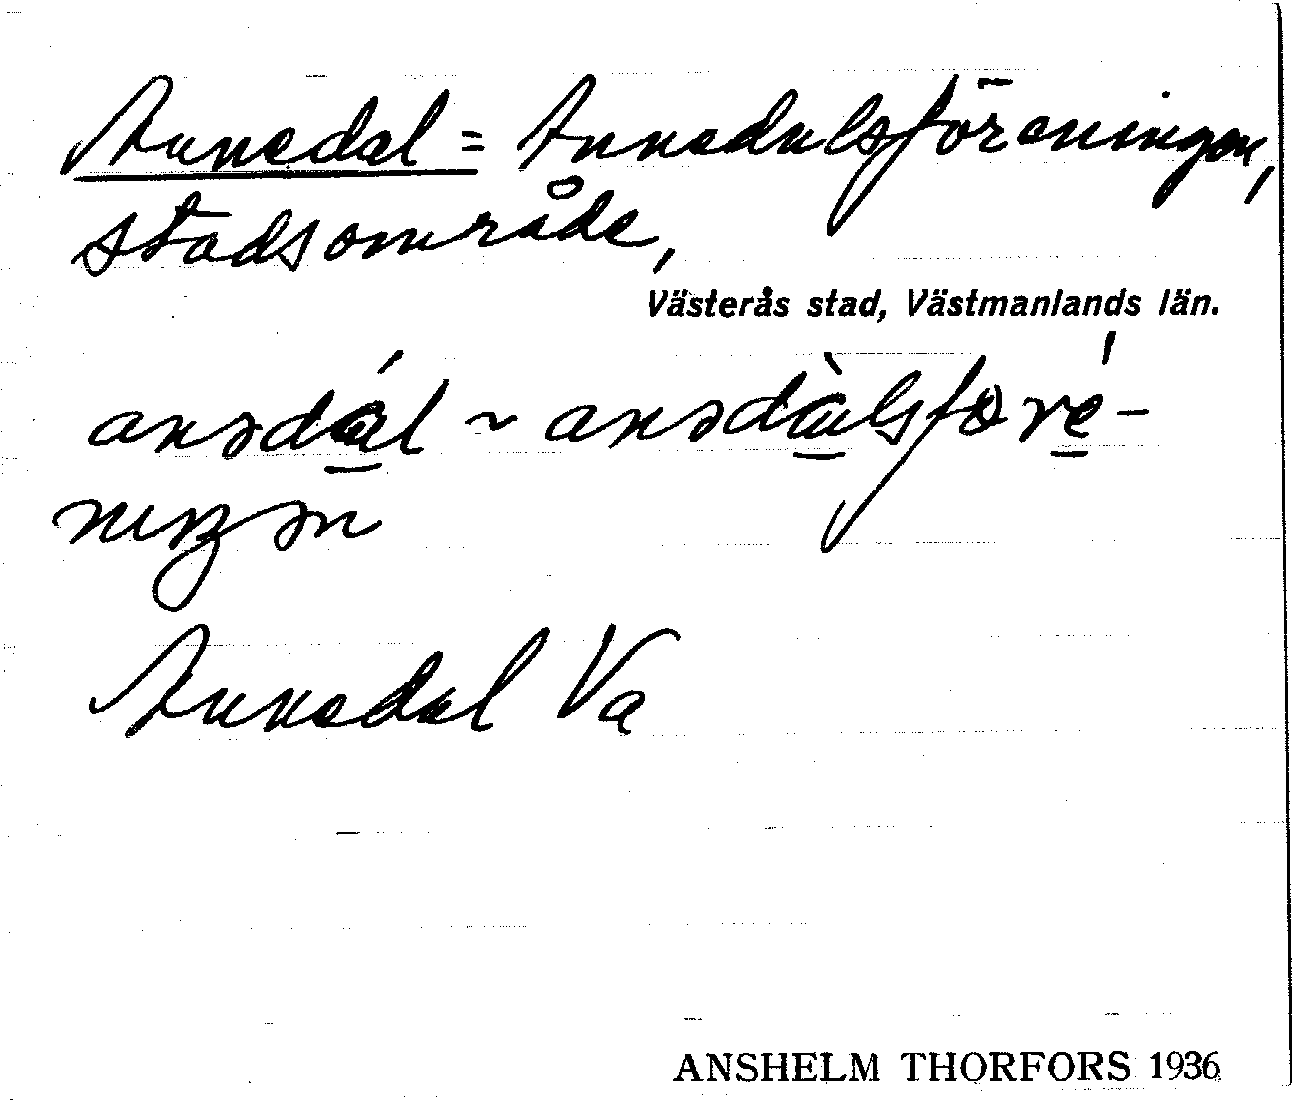 Annedal = Annedalsföreningen,
stadsområde,
Västerås stad, Västmanlands län.
anədál ~ anədàlsføré-
niŋən
Annedal Va
ANSHELM THORFORS 1936